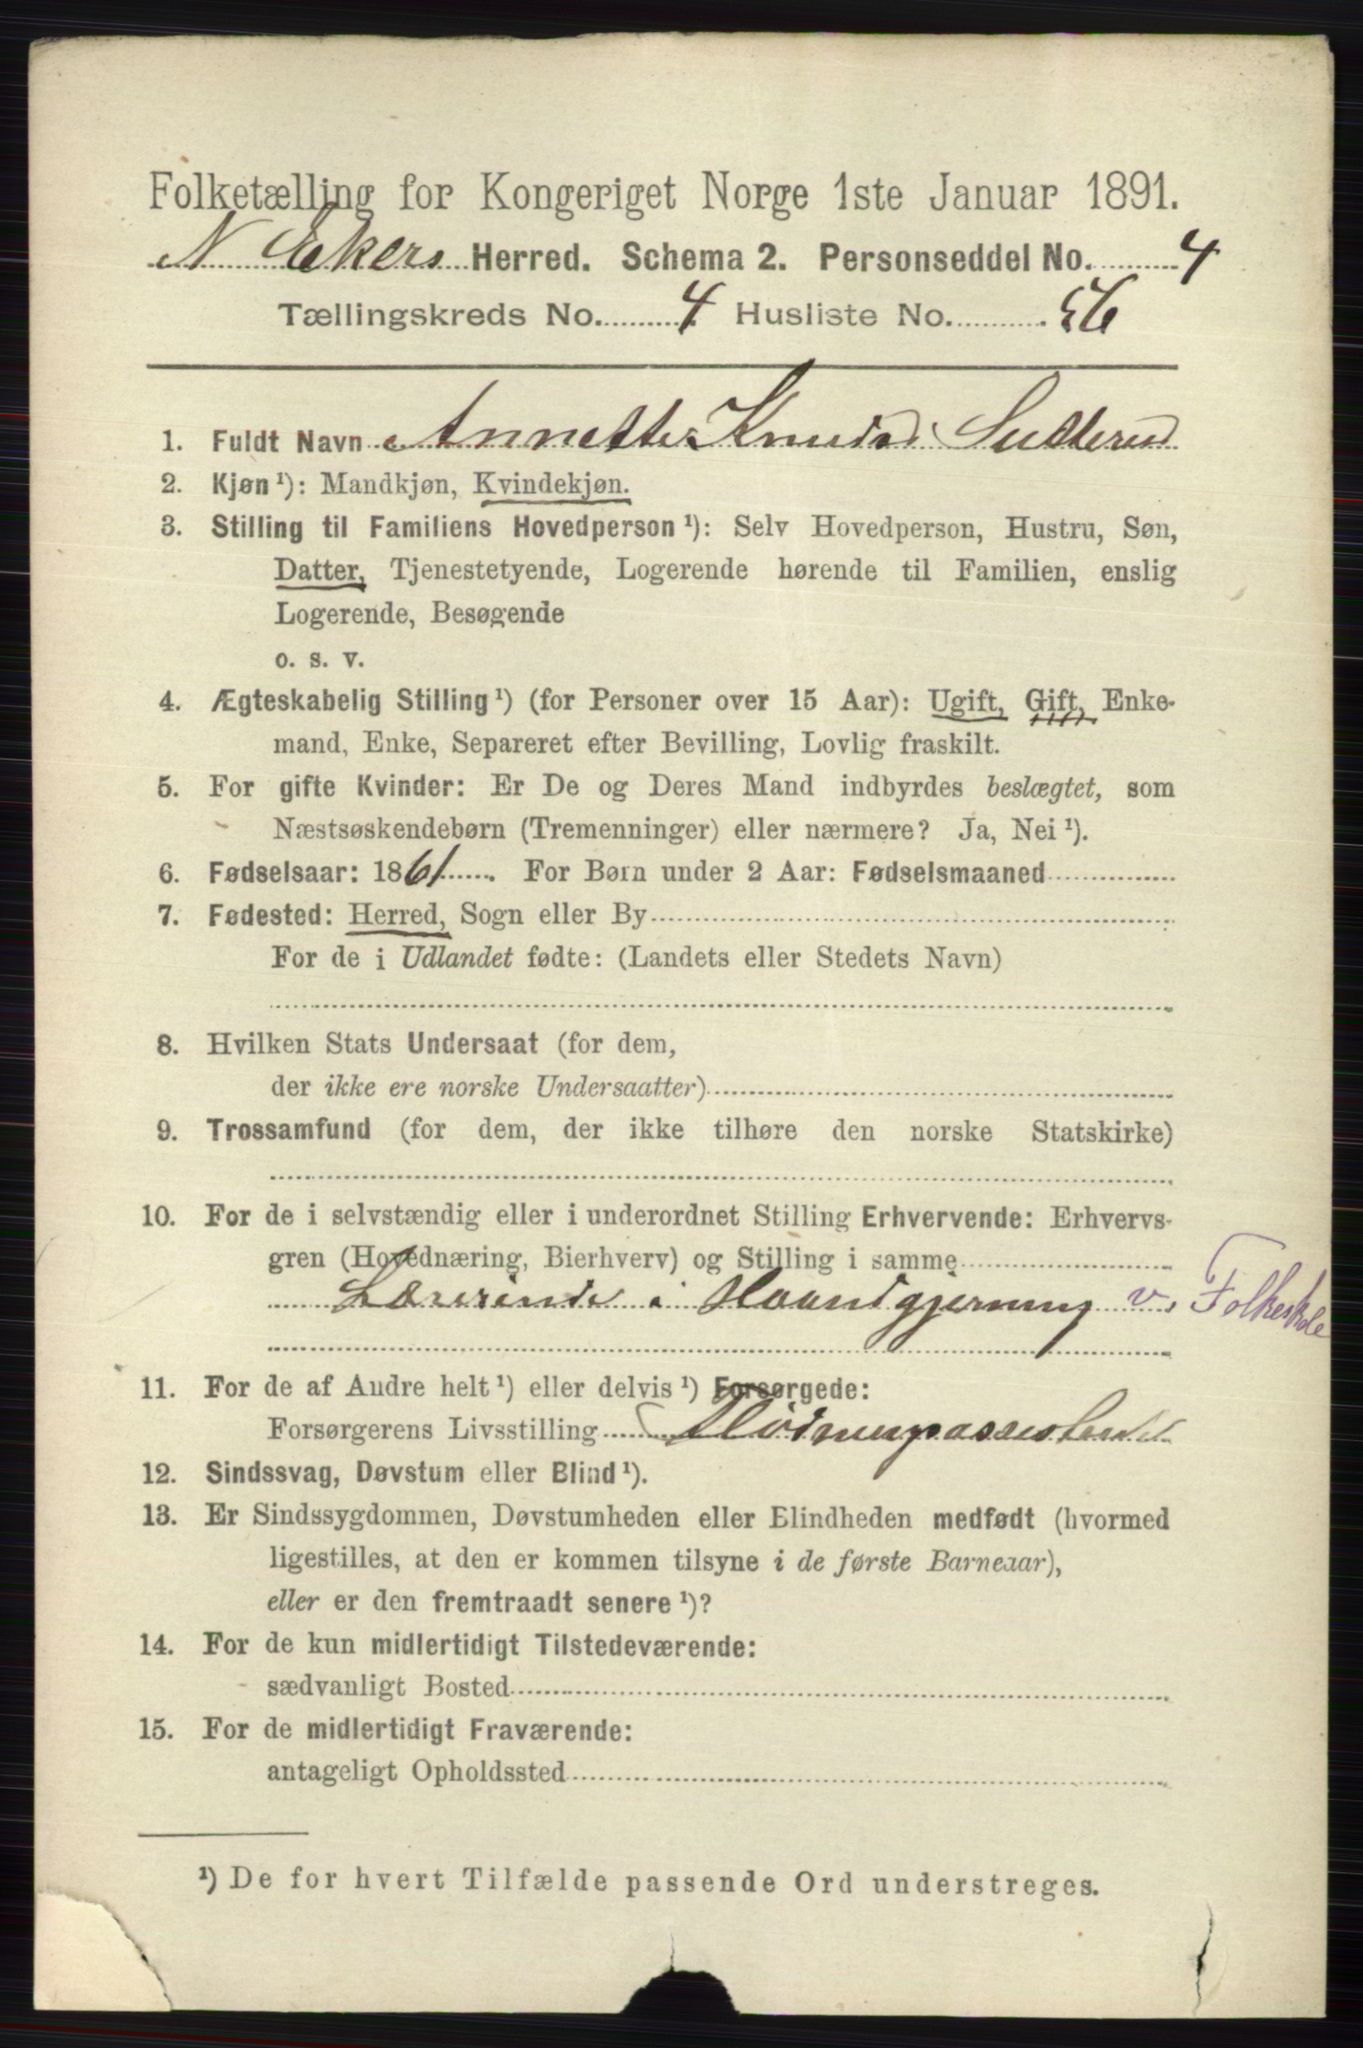 Folketælling for Kongeriget Norge 1ste Januar 1891.
N Ekers Herred. Schema 2. Personseddel No. 4
Tællingskreds No. 4 Husliste No. 56
1. Fuldt Navn Annette Knudsd.
2. Kjøn ¹): Mandkjøn, Kvindekjøn.
3. Stilling til Familiens Hovedperson ¹): Selv Hovedperson, Hustru, Søn,
Datter, Tjenestetyende, Logerende hørende til Familien, enslig
Logerende, Besøgende
o. s. v.
4. Ægteskabelig Stilling ¹) (for Personer over 15 Aar): Ugift, Gift, Enke-
mand, Enke, Separeret efter Bevilling, Lovlig fraskilt.
5. For gifte Kvinder: Er De og Deres Mand indbyrdes beslægtet, som
Næstsøskendebørn (Tremenninger) eller nærmere? Ja, Nei ¹).
6. Fødselsaar: 1861. For Børn under 2 Aar: Fødselsmaaned
7. Fødested: Herred, Sogn eller By
For de i Udlandet fødte: (Landets eller Stedets Navn)
8. Hvilken Stats Undersaat (for dem,
der ikke ere norske Undersaatter)
9. Trossamfund (for dem, der ikke tilhøre den norske Statskirke)
10. For de i selvstændig eller i underordnet Stilling Erhvervende: Erhvervs-
gren (Hovednæring, Bierhverv) og Stilling i samme
Lærerinde i Haandgjerning v. Folkeskole
11. For de af Andre helt ¹) eller delvis ¹) Forsørgede:
Forsørgerens Livsstilling
12. Sindssvag, Døvstum eller Blind ¹).
13. Er Sindssygdommen, Døvstumheden eller Blindheden medfødt (hvormed
ligestilles, at den er kommen tilsyne i de første Barneaar),
eller er den fremtraadt senere ¹)?
14. For de kun midlertidigt Tilstedeværende:
sædvanligt Bosted
15. For de midlertidigt Fraværende:
antageligt Opholdssted
¹) De for hvert Tilfælde passende Ord understreges.